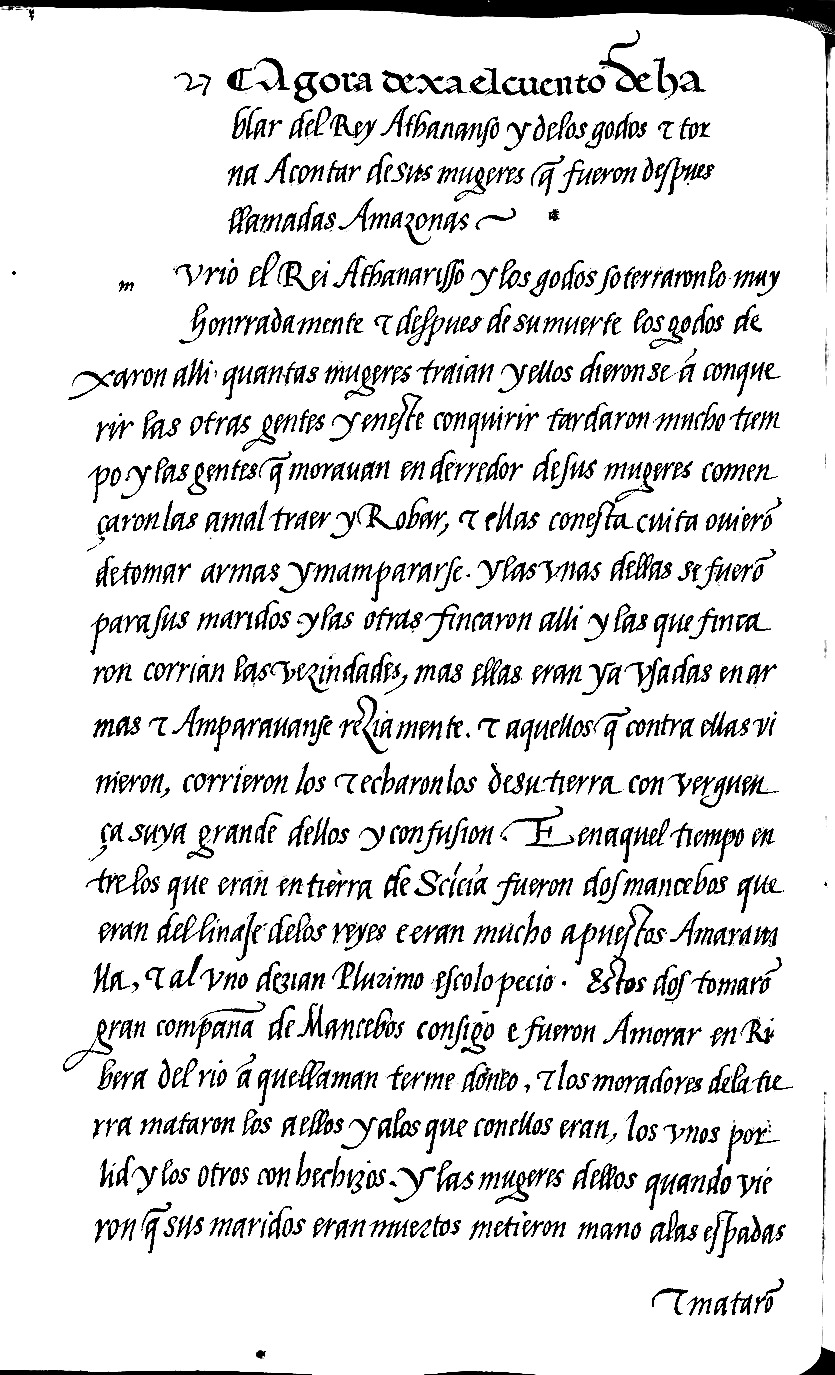 27 ¶ Agora dexa el cuento de ha
blar del Rey Athananso y delos godos τ tor
na Acontar desus mugeres q̃ fueron despues
llamadas Amazonas ~
m Vrio el Rei Athanarisso y los godos soterraronlo muy
honrradamente τ despues de su muerte los godos de
xaron alli quantas mugeres traian y ellos dieronse á conque
rir las otras gentes y eneste conquirir tardaron mucho tiem
po y las gentes q̃ morauan en derredor desus mugeres comen
çaron las amal traer y Robar, τ ellas conesta cuita ouierõ
detomar armas y mampararse. y las vnas dellas se fuerõ
parasus maridos y las otras fincaron alli y las que finca
ron corrian las vezindades, mas ellas eran ya vsadas en ar
mas τ Amparauanse reziamente. τ aquellos q̃ contra ellas vi
nieron, corrieron los τ echaron los desu tierra con verguen
ça suya grande dellos y confusion. E enaquel tiempo en
tre los que eran en tierra de Sciçia fueron dos mancebos que
eran del linaje delos reyes e eran mucho apuestos Amaraui
lla, τ al vno dezian Plurimo escolopecio. Estos dos tomarõ
gran compaña de Mancebos consigo e fueron Amorar en Ri
bera del rio a quellaman terme dõnto, τ los moradores dela tie
rra mataron los aellos y alos que conellos eran, los vnos por
lid y los otros con hechizos. y las mugeres dellos quando vie
ron q̃ sus maridos eran muertos metieron mano alas espadas
τ matarõ